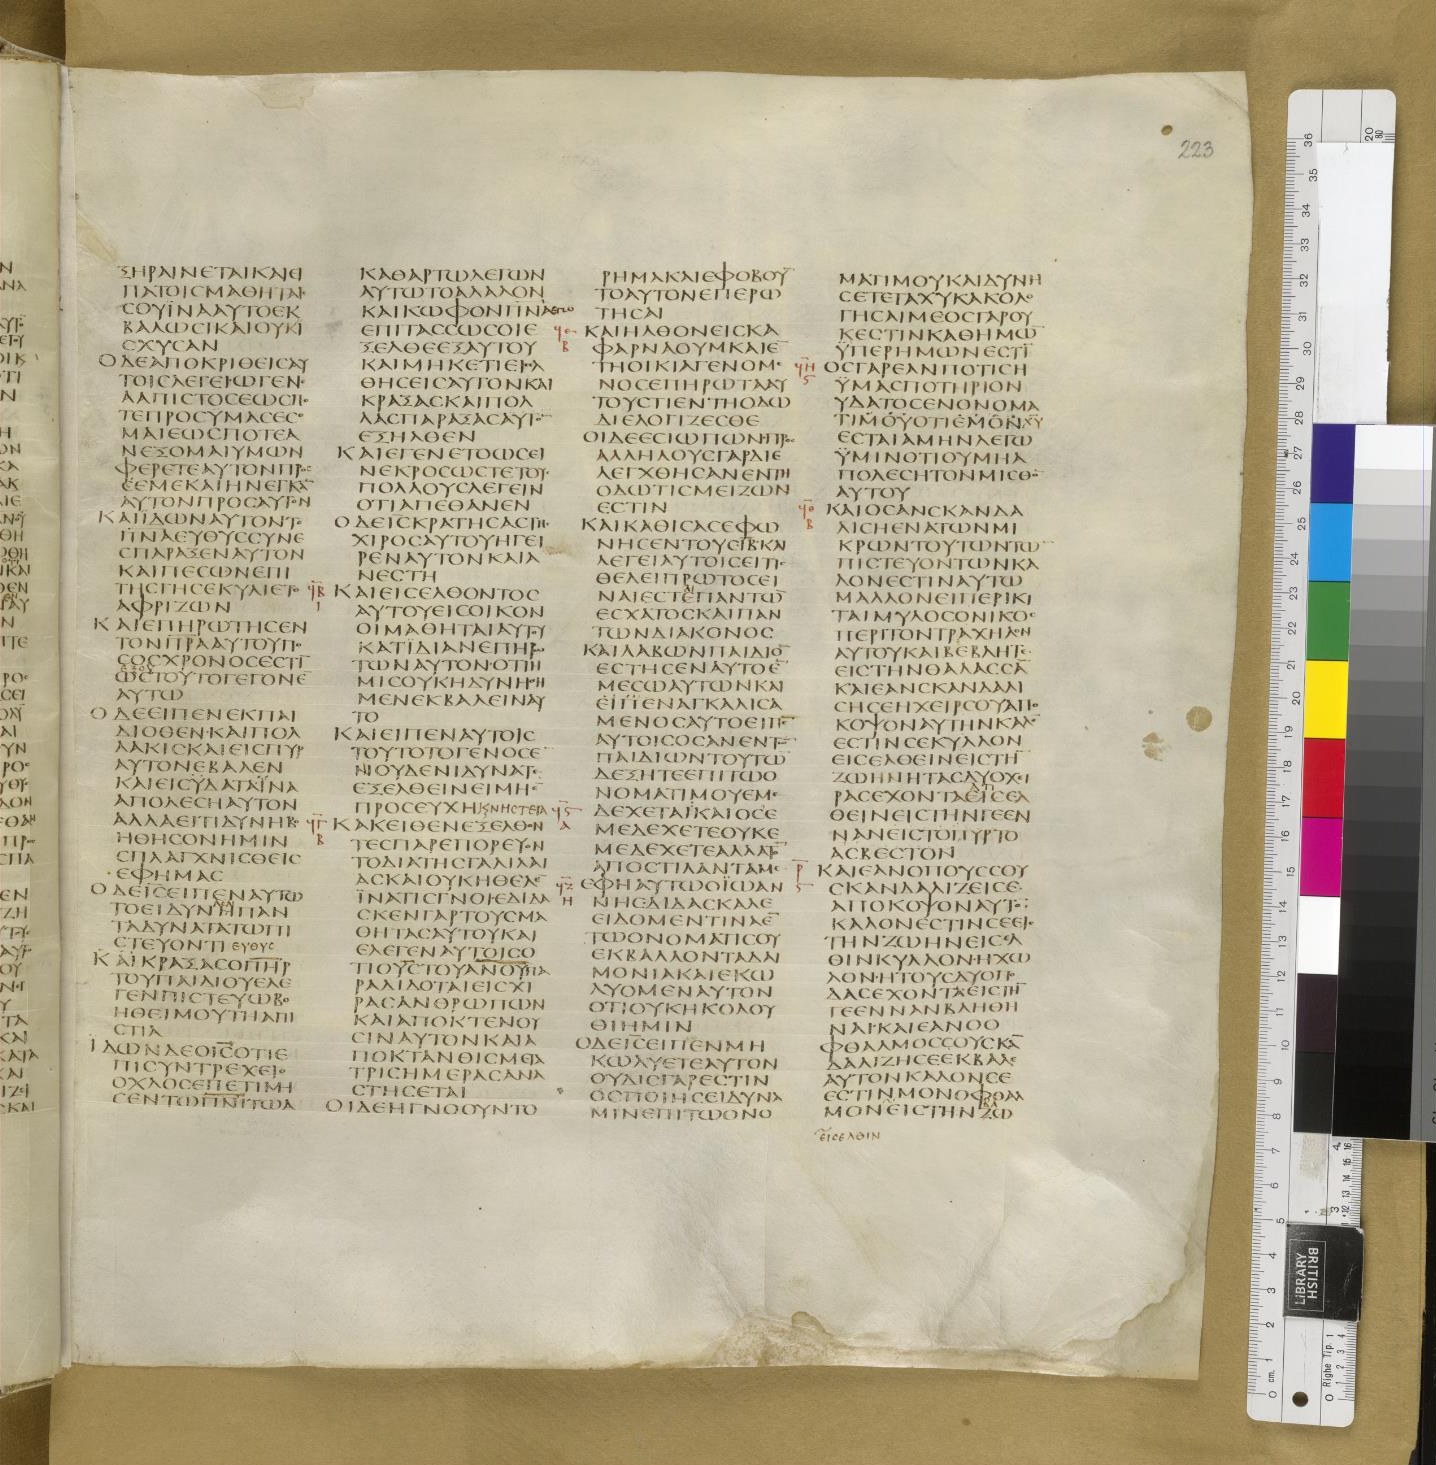 223
ΞΗΡΑΙΝΕΤΑΙΚΑΙΕΙ
ΠΑΤΟΙϹΜΑΘΗΤΑΙ
ϹΟΥΪΝΑΑΥΤΟΕΚ
ΒΑΛΩϹΙΚΑΙΟΥΚΙ
ϹΧΥϹΑΝ
ΟΔΕΑΠΟΚΡΙΘΕΙϹΑΥ
ΤΟΙϹΛΕΓΕΙΩΓΕΝΕ
ΑΑΠΙϹΤΟϹΕΩϹΠΟ
ΤΕΠΡΟϹΥΜΑϹΕϹΟ
ΜΑΙΕΩϹΠΟΤΕΑ
ΝΕΞΟΜΑΙΥΜΩΝ
ΦΕΡΕΤΕΑΥΤΟΝΠΡΟϹ
ΕΜΕΚΑΙΗΝΕΓΚΑ̅
ΑΥΤΟΝΠΡΟϹΑΥΤΟΝ
ΚΑΙΪΔΩΝΑΥΤΟΝΤΟ
Π̅Ν̅ΑΕΥΘΥϹϹΥΝΕ
ϹΠΑΡΑΞΕΝΑΥΤΟΝ
ΚΑΙΠΕϹΩΝΕΠΙ
ΤΗϹΓΗϹΕΚΥΛΙΕΤΟ
ΑΦΡΙΖΩΝ
ΚΑΙΕΠΗΡΩΤΗϹΕΝ
ΤΟΝΠ̅Ρ̅ΑΑΥΤΟΥΠΟ
ϹΟϹΧΡΟΝΟϹΕϹΤΙ̅
ΩϹΤΟΥΤΟΓΕΓΟΝΕ̅
ΑΥΤΩ
ΟΔΕΕΙΠΕΝΕΚΠΑΙ
ΔΙΟΘΕΝ·ΚΑΙΠΟΛ
ΛΑΚΙϹΚΑΙΕΙϹΠΥΡ
ΑΥΤΟΝΕΒΑΛΕΝ
ΚΑΙΕΙϹΫΔΑΤΑΪΝΑ
ΑΠΟΛΕϹΗΑΥΤΟΝ
ΑΛΛΑΕΙΤΙΔΥΝΗΒΟ
ΗΘΗϹΟΝΗΜΙΝ
ϹΠΛΑΓΧΝΙϹΘΕΙϹ
ΕΦΗΜΑϹ
ΟΔΕΙ̅Ϲ̅ΕΙΠΕΝΑΥΤΩ
ΤΟΕΙΔΥΝΗΠΑΝ
ΤΑΔΥΝΑΤΑΤΩΠΙ
ϹΤΕΥΟΝΤΙ ΕΥΘΥϹ
ΚΑΙΚΡΑΞΑϹΟΠ̅Η̅Ρ̅
ΤΟΥΠΑΙΔΙΟΥΕΛΕ
ΓΕΝΠΙϹΤΕΥΩΒΟ
ΗΘΕΙΜΟΥΤΗΑΠΙ
ϹΤΙΑ
ΪΔΩΝΔΕΟΙ̅Ϲ̅ΟΤΙΕ
ΠΙϹΥΝΤΡΕΧΕΙΟ
ΟΧΛΟϹΕΠΕΤΙΜΗ
ϹΕΝΤΩΠ̅Ν̅Ι̅ΤΩΑ
ΚΑΘΑΡΤΩΛΕΓΩΝ
ΑΥΤΩΤΟΑΛΑΛΟΝ
ΚΑΙΚΩΦΟΝΠ̅Ν̅Α̅ΕΓΩ
ΕΠΙΤΑϹϹΩϹΟΙΕ
ΞΕΛΘΕΕΞΑΥΤΟΥ
ΚΑΙΜΗΚΕΤΙΕΙϹΕΛ
ΘΗϹΕΙϹΑΥΤΟΝΚΑΙ
ΚΡΑΞΑϹΚΑΙΠΟΛ
ΛΑϹΠΑΡΑΞΑϹΑΥΤΟ̅
ΕΞΗΛΘΕΝ
ΚΑΙΕΓΕΝΕΤΟΩϹΕΙ
ΝΕΚΡΟϹΩϹΤΕΤΟΥϹ
ΠΟΛΛΟΥϹΛΕΓΕΙΝ
ΟΤΙΑΠΕΘΑΝΕΝ
ΟΔΕΙ̅Ϲ̅ΚΡΑΤΗϹΑϹΤΗϹ
ΧΙΡΟϹΑΥΤΟΥΗΓΕΙ
ΡΕΝΑΥΤΟΝΚΑΙΑ
ΝΕϹΤΗ
ΚΑΙΕΙϹΕΛΘΟΝΤΟϹ
ΑΥΤΟΥΕΙϹΟΙΚΟΝ
ΟΙΜΑΘΗΤΑΙΑΥΤΟΥ
ΚΑΤΪΔΙΑΝΕΠΗΡΩ
ΤΩΝΑΥΤΟΝ·ΟΤΙΗ
ΜΙϹΟΥΚΗΔΥΝΗΘΗ
ΜΕΝΕΚΒΑΛΕΙΝΑΥ
ΤΟ
ΚΑΙΕΙΠΕΝΑΥΤΟΙϹ
ΤΟΥΤΟΤΟΓΕΝΟϹΕ̅
ΝΟΥΔΕΝΙΔΥΝΑΤΑΙ
ΕΞΕΛΘΕΙΝΕΙΜΗΕ̅
ΠΡΟϹΕΥΧΗΚϹΝΗϹΤΕΙΑ
ΚΑΚΕΙΘΕΝΕΞΕΛΘΟΝ
ΤΕϹΠΑΡΕΠΟΡΕΥΟΝ
ΤΟΔΙΑΤΗϹΓΑΛΙΛΑΙ
ΑϹΚΑΙΟΥΚΗΘΕΛΕ̅
ΪΝΑΤΙϹΓΝΟΙΕΔΙΔΑ
ϹΚΕΝΓΑΡΤΟΥϹΜΑ
ΘΗΤΑϹΑΥΤΟΥΚΑΙ
ΕΛΕΓΕΝΑΥΤΟΙϹΟ
ΤΙΟΥ̅Ϲ̅ΤΟΥΑ̅Ν̅Ο̅Υ̅ΠΑ
ΡΑΔΙΔΟΤΑΙΕΙϹΧΙ
ΡΑϹΑΝΘΡΩΠΩΝ
ΚΑΙΑΠΟΚΤΕΝΟΥ
ϹΙΝΑΥΤΟΝΚΑΙΑ
ΠΟΚΤΑΝΘΙϹΜΕΤΑ
ΤΡΙϹΗΜΕΡΑϹΑΝΑ
ϹΤΗϹΕΤΑΙ
ΟΙΔΕΗΓΝΟΟΥΝΤΟ
ΡΗΜΑΚΑΙΕΦΟΒΟΥ̅
ΤΟΑΥΤΟΝΕΠΕΡΩ
ΤΗϹΑΙ
ΚΑΙΗΛΘΟΝΕΙϹΚΑ
ΦΑΡΝΑΟΥΜΚΑΙΕ̅
ΤΗΟΙΚΙΑΓΕΝΟΜΕ
ΝΟϹΕΠΗΡΩΤΑΑΥ
ΤΟΥϹΤΙΕΝΤΗΟΔΩ
ΔΙΕΛΟΓΙΖΕϹΘΕ
ΟΙΔΕΕϹΙΩΠΩΝΠΡΟϹ
ΑΛΛΗΛΟΥϹΓΑΡΔΙΕ
ΛΕΓΧΘΗϹΑΝΕΝΤΗ
ΟΔΩΤΙϹΜΕΙΖΩΝ
ΕϹΤΙΝ
ΚΑΙΚΑΘΙϹΑϹΕΦΩ
ΝΗϹΕΝΤΟΥϹΙ̅Β̅ΚΑΙ
ΛΕΓΕΙΑΥΤΟΙϹΕΙΤΙϹ
ΘΕΛΕΙΠΡΩΤΟϹΕΙ
ΝΑΙΕϹΤΕΠΑΝΤΩ̅
ΕϹΧΑΤΟϹΚΑΙΠΑΝ
ΤΩΝΔΙΑΚΟΝΟϹ
ΚΑΙΛΑΒΩΝΠΑΙΔΙΟ̅
ΕϹΤΗϹΕΝΑΥΤΟΕ̅
ΜΕϹΩΑΥΤΩΝΚΑΙ
ΕΝΑΓΚΑΛΙϹΑ
ΜΕΝΟϹΑΥΤΟΕΙΠΕ̅
ΑΥΤΟΙϹΟϹΑΝΕΝΤΩ̅
ΠΑΙΔΙΩΝΤΟΥΤΩ̅
ΔΕΞΗΤΕΕΠΙΤΩΟ
ΝΟΜΑΤΙΜΟΥΕΜΕ
ΔΕΧΕΤΑΙΚΑΙΟϹΕ
ΜΕΔΕΧΕΤΕΟΥΚΕ
ΜΕΔΕΧΕΤΕΑΛΛΑΤΟ̅
ΑΠΟϹΤΙΛΑΝΤΑΜΕ
ΕΦΗΑΥΤΩΟΪΩΑΝ
ΝΗϹΔΙΔΑϹΚΑΛΕ
ΕΙΔΟΜΕΝΤΙΝΑΕ̅
ΤΩΟΝΟΜΑΤΙϹΟΥ
ΕΚΒΑΛΛΟΝΤΑΔΑΙ
ΜΟΝΙΑΚΑΙΕΚΩ
ΛΥΟΜΕΝΑΥΤΟΝ
ΟΤΙΟΥΚΗΚΟΛΟΥ
ΘΙΗΜΙΝ
ΟΔΕΙ̅Ϲ̅ΕΙΠΕΝΜΗ
ΚΩΛΥΕΤΕΑΥΤΟΝ
ΟΥΔΙϹΓΑΡΕϹΤΙΝ
ΟϹΠΟΙΗϹΕΙΔΥΝΑ
ΜΙΝΕΠΙΤΩΟΝΟ
ΜΑΤΙΜΟΥΚΑΙΔΥΝΗ
ϹΕΤΕΤΑΧΥΚΑΚΟΛΟ
ΓΗϹΑΙΜΕΟϹΓΑΡΟΥ
ΚΕϹΤΙΝΚΑΘΗΜΩ̅
ΫΠΕΡΗΜΩΝΕϹΤΙ̅
ΟϹΓΑΡΕΑΝΠΟΤΙϹΗ
ΫΜΑϹΠΟΤΗΡΙΟΝ
ΥΔΑΤΟϹΕΝΟΝΟΜΑ
ΤΙΜΟΥΟΤΙΕΜΟΝΧΥ
ΕϹΤΑΙΑΜΗΝΛΕΓΩ
ΫΜΙΝΟΤΙΟΥΜΗΑ
ΠΟΛΕϹΗΤΟΝΜΙϹΘΟ̅
ΑΥΤΟΥ
ΚΑΙΟϹΑΝϹΚΑΝΔΑ
ΛΙϹΗΕΝΑΤΩΝΜΙ
ΚΡΩΝΤΟΥΤΩΝΤΩ̅
ΠΙϹΤΕΥΟΝΤΩΝΚΑ
ΛΟΝΕϹΤΙΝΑΥΤΩ
ΜΑΛΛΟΝΕΙΠΕΡΙΚΙ
ΤΑΙΜΥΛΟϹΟΝΙΚΟϹ
ΠΕΡΙΤΟΝΤΡΑΧΗΛΟΝ
ΑΥΤΟΥΚΑΙΒΕΒΛΗΤΑΙ
ΕΙϹΤΗΝΘΑΛΑϹϹΑ̅
ΚΑΙΕΑΝϹΚΑΝΔΑΛΙ
ϹΗϹΕΗΧΕΙΡϹΟΥΑΠΟ
ΚΟΨΟΝΑΥΤΗΝΚΑΛΟ̅
ΕϹΤΙΝϹΕΚΥΛΛΟΝ
ΕΙϹΕΛΘΕΙΝΕΙϹΤΗ̅
ΖΩΗΝΗΤΑϹΔΥΟΧΕΙ
ΡΑϹΕΧΟΝΤΑΕΙϹΕΛ
ΘΕΙΝΕΙϹΤΗΝΓΕΕΝ
ΝΑΝΕΙϹΤΟΠΥΡΤΟ
ΑϹΒΕϹΤΟΝ
ΚΑΙΕΑΝΟΠΟΥϹϹΟΥ
ϹΚΑΝΔΑΛΙΖΕΙϹΕ
ΑΠΟΚΟΨΟΝΑΥΤΟ̅
ΚΑΛΟΝΕϹΤΙΝϹΕΕΙϹ
ΤΗΝΖΩΗΝΕΙϹΕΛ
ΘΙΝΚΥΛΛΟΝ·ΗΧΩ
ΛΟΝ·ΗΤΟΥϹΔΥΟΠΟ
ΔΑϹΕΧΟΝΤΑΕΙϹΤΗ̅
ΓΕΕΝΝΑΝΒΛΗΘΗ
ΝΑΙ·ΚΑΙΕΑΝΟΟ
ΦΘΑΛΜΟϹϹΟΥϹΚΑ̅
ΔΑΛΙΖΗϹΕΕΚΒΑΛΕ
ΑΥΤΟΝΚΑΛΟΝϹΕ
ΕϹΤΙΝΜΟΝΟΦΘΑΛ
ΜΟΝΕΙϹΤΗΝΖΩ
ΕΙϹΕΛΘΙΝ